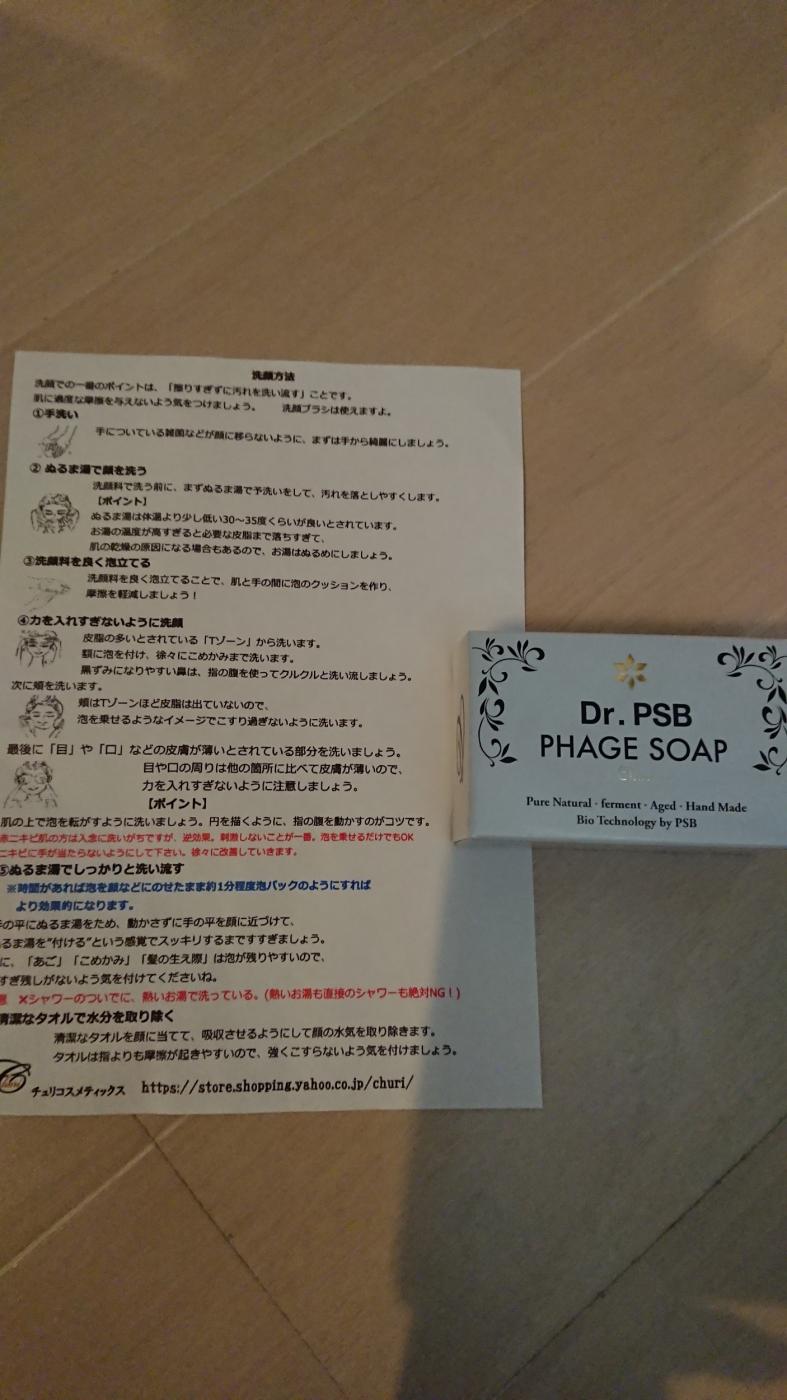 洗顔方法
洗顔での一番のポイントは、「擦りすぎずに汚れを洗い流す」ことです。
肌に過度な摩擦を与えないよう気をつけましょう。 洗顔ブラシは使えますよ。
①手洗い
手についている雑菌などが顔に移らないように、まずは手から綺麗にしましょう。
② ぬるま湯で顔を洗う
洗顔料で洗う前に、まずぬるま湯で予洗いをして、汚れを落としやすくします。
【ポイント】
ぬるま湯は体温より少し低い30～35度くらいが良いとされています。
お湯の温度が高すぎると必要な皮脂まで落ちすぎて、
肌の乾燥の原因になる場合もあるので、お湯はぬるめにしましょう。
③洗顔料を良く泡立てる
洗顔料を良く泡立てることで、肌と手の間に泡のクッションを作り、
摩擦を軽減しましょう！
④力を入れすぎないように洗顔
皮脂の多いとされている「Tゾーン」から洗います。
額に泡を付け、徐々にこめかみまで洗います。
黒ずみになりやすい鼻は、指の腹を使ってクルクルと洗い流しましょう。
次に頬を洗います。
頬はTゾーンほど皮脂は出ていないので、
泡を乗せるようなイメージでこすり過ぎないように洗います。
最後に「目」や「口」などの皮膚が薄いとされている部分を洗いましょう。
目や口の周りは他の箇所に比べて皮膚が薄いので、
力を入れすぎないように注意しましょう。
【ポイント】
肌の上で泡を転がすように洗いましょう。円を描くように、指の腹を動かすのがコツです。
赤ニキビ肌の方は入念に洗いがちですが、逆効果。刺激しないことが一番。泡を乗せるだけでもOK
ニキビに手が当たらないようにして下さい。徐々に改善していきます。
⑤ぬるま湯でしっかりと洗い流す
※時間があれば泡を顔などにのせたまま約1分程度泡パックのようにすれば
より効果的になります。
の平にぬるま湯をため、動かさずに手の平を顔に近づけて、
るま湯を"付ける"という感覚でスッキリするまですすぎましょう。
に、「あご」「こめかみ」「髪の生え際」は泡が残りやすいので、
すぎ残しがないよう気を付けてくださいね。
✕シャワーのついでに、熱いお湯で洗っている。(熱いお湯も直接のシャワーも絶対NG！)
清潔なタオルで水分を取り除く
清潔なタオルを顔に当てて、吸収させるようにして顔の水気を取り除きます。
タオルは指よりも摩擦が起きやすいので、強くこすらないよう気を付けましょう。
チュリコスメティックス https://store.shopping.yahoo.co.jp/churi/
Dr. PSB
PHAGE SOAP
Pure Natural · ferment · Aged · Hand Made
Bio Technology by PSB